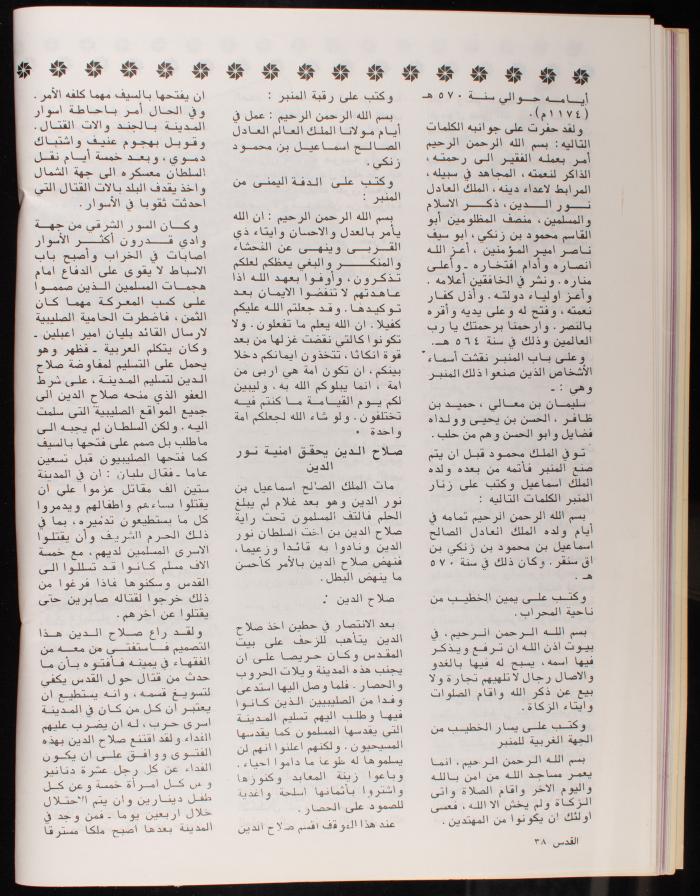 أيامه حوالي سنة ٥٧٠ هـ
(١١٧٤م).
ولقد حفرت على جوانبه الكلمات
التاليه: بسم الله الرحمن الرحيم
أمر بعمله الفقير الى رحمته،
الذاكر لنعمته، المجاهد في سبيله،
المرابط لاعداء دينه، الملك العادل
نور الدين، ذكر الاسلام
والمسلمين، منصف المظلومين أبو
القاسم محمود بن زنكي، أبو سيف
ناصر امير المؤمنين، أعز الله
انصاره وأدام افتخاره ـ وأعلى
مناره. ونشر في الخافقين أعلامه.
وأعز اولياء دولته. وأذل كفار
نعمته، وفتح له وعلى يديه وأقره
بالنصر. وارحمنا برحمتك يا رب
العالمين وذلك في سنة ٥٦٤ هـ.
وعلى باب المنبر نقشت أسماء
الأشخاص الذين صنعوا ذلك المنبر
وهي : ـ
سليمان بن معالي، حميد بن
ظافر، الحسن بن يحيى وولداه
فضايل وابو الحسن وهم من حلب.
توفي الملك محمود قبل ان يتم
صنع المنبر فأتمه من بعده ولده
الملك اسماعيل وكتب على زنار
المنبر الكلمات التاليه :
بسم الله الرحمن الرحيم تمامه في
أيام ولده الملك العادل الصالح
اسماعيل بن محمود بن زنكي بن
اق سنقر. وكان ذلك في سنة ٥٧٠
هـ.
وكتب على يمين الخطيب من
ناحية المحراب.
بسم الله الرحمن الرحيم. في
بيوت اذن الله ان ترفع ويذكر
فيها اسمه، يسبح له فيها بالغدو
والاصال رجال لا تلهيهم تجارة ولا
بيع عن ذكر الله واقام الصلوات
وايتاء الزكاة.
وكتب على يسار الخطيب من
الجهة الغربية للمنبر
بسم الله الرحمن الرحيم. انما
يعمر مساجد الله من امن بالله
واليوم الاخر واقام الصلاة واتى
الزكاة ولم يخش الا الله، فعسى
أولئك ان يكونوا من المهتدين.
وكتب على رقبة المنبر :
بسم الله الرحمن الرحيم : عمل في
أيام مولانا الملك العالم العادل
الصالح اسماعيل بن محمود
زنكي.
وكتب على الدفة اليمنى من
المنبر :
بسم الله الرحمن الرحيم : ان الله
يأمر بالعدل والاحسان وايتاء ذي
القربى وينهى عن الفحشاء
والمنكر والبغي يعظكم لعلكم
تذكرون، وأوفوا بعهد الله اذا
عاهدتهم لا تنقضوا الايمان بعد
توكيدها. وقد جعلتم الله عليكم
كفيلا. ان الله يعلم ما تفعلون. ولا
تكونوا كالتي نقضت غزلها من بعد
قوة انكاثا، تتخذون ايمانكم دخلا
بينكم، ان تكون امة هي اربى من
امة ، انما يبلوكم الله به، وليبين
لكم يوم القيامة ما كنتم فيه
تختلفون. ولو شاء الله لجعلكم امة
واحدة .
صلاح الدين يحقق امنية نور
الدين
مات الملك الصالح اسماعيل بن
نور الدين وهو بعد غلام لم يبلغ
الحلم فالتف المسلمون تحت راية
صلاح الدين بن اخت السلطان نور
الدين ونادوا به قائدا وزعيما،
فنهض صلاح الدين بالأمر كأحسن
ما ينهض البطل.
صلاح الدين :
بعد الانتصار في حطين اخذ صلاح
الدين يتأهب للزحف على بيت
المقدس وكان حريصا على ان
يجنب هذه المدينة ويلات الحروب
والحصار. فلما وصل اليها استدعى
وفدا من الصليبيين الذين كانوا
فيها وطلب اليهم تسليم المدينة
التي يقدسها المسلمون كما يقدسها
المسيحيون. ولكنهم اعلنوا انهم لن
يسلموها له طوعا ما داموا احياء.
وباعوا زينة المعابد وكنوزها
واشتروا بأثمانها اسلحة واغدية
للصمود على الحصار.
عند هذا الموقف اقسم صلاح الدين
ان يفتحها بالسيف مهما كلفه الأمر.
وفي الحال أمر باحاطة اسوار
المدينة بالجند والات القتال.
وقوبل بهجوم عنيف واشتباك
دموي، وبعد خمسة أيام نقل
السلطان معسكره الى جهة الشمال
واخذ يقدف البلد بالات القتال التي
احدثت ثقوبا في الأسوار.
وكان السور الشرقي من جهة
وادي قدرون أكثر الأسوار
اصابات في الخراب وأصبح باب
الاسباط لا يقوى على الدفاع امام
هجمات المسلمين الذين صمموا
على كسب المعركة مهما كان
الثمن، فاضطرت الحامية الصليبية
لارسال القائد بليان امير اعبلين ـ
وكان يتكلم العربية ـ فظهر وهو
يحمل على التسليم لمفاوضة صلاح
الدين لتسليم المدينة، على شرط
العفو الذي منحه صلاح الدين الى
جميع المواقع الصليبية التي سلمت
اليه. ولكن السلطان لم يجبه الى
ماطلب بل صمم على فتحها بالسيف
كما فتحها الصليبيون قبل تسعين
عاما ـ فقال بليان : ان في المدينة
ستين الف مقاتل عزموا على ان
يقتلوا نساءهم واطفالهم ويدمروا
كل ما يستطيعون تدميره، بما في
ذلك الحرم الشريف وأن يقتلوا
الاسرى المسلمين لديهم، مع خمسة
الاف مسلم كانوا قد تسللوا الى
القدس وسكنوها فاذا فرغوا من
ذلك خرجوا لقتاله صابرين حتى
يقتلوا عن آخرهم.
ولقد راع صلاح الدين هذا
التصميم فاستفتى من معه من
الفقهاء في يمينه فأفتوه بأن ما
حدث من قتال حول القدس يكفي
لتسويغ قسمه، وانه يستطيع ان
يعتبر أن كل من كان في المدينة
اسرى حرب، له ان يضرب عليهم
الفداء ولقد اقتنع صلاح الدين بهذه
الفتوى ووافق على ان يكون
الفداء عن كل رجل عشرة دنانير
وعن كل امرأة خمسة وعن كل
طفل دينارين وان يتم الاحتلال
خلال اربعين يوما ـ فمن وجد في
المدينة بعدها أصبح ملكا مسترقا
القدس ٣٨